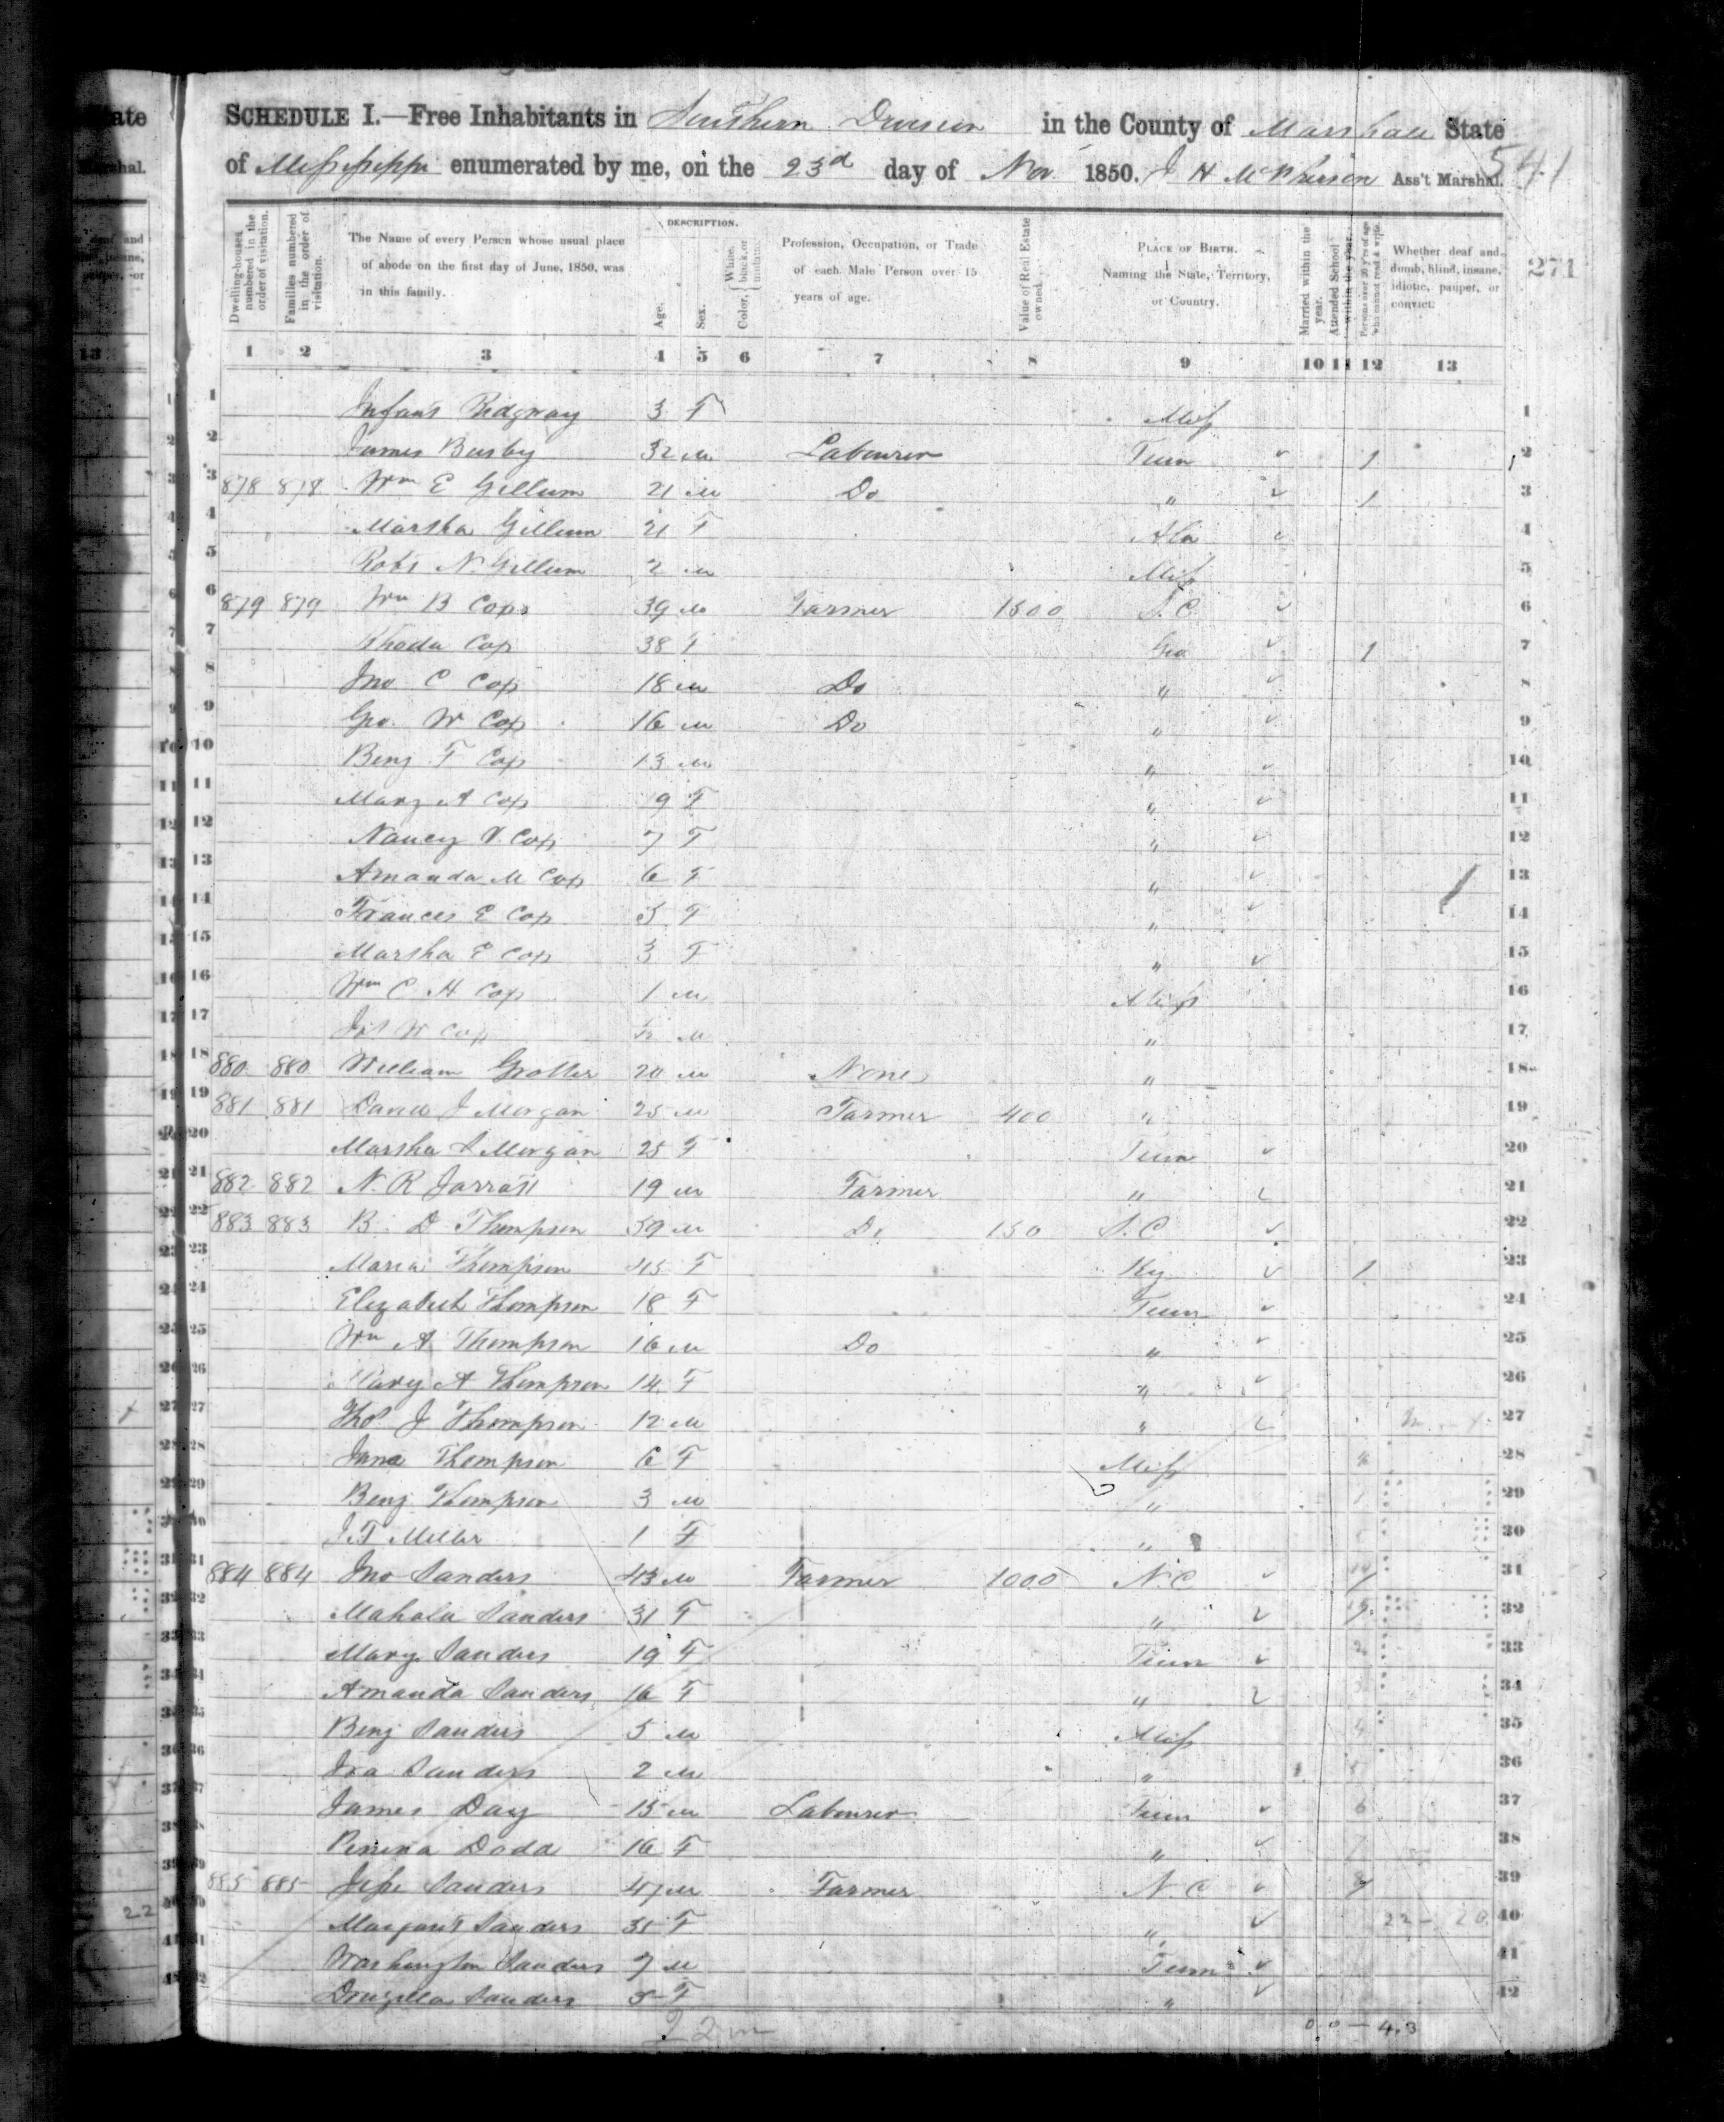 SCHEDULE I.—Free Inhabitants in Southern Division in the County of Marshall State
of Mississippi enumerated by me, on the 23d day of Nov 1850. J H McPherson Ass't Marshal.
541
271
DESCRIPTION.
Dwelling-houses numbered in the order of visitation.
Families numbered in the order of visitation.
The Name of every Person whose usual place of abode on the first day of June, 1850, was in this family.
Age.
Sex.
Color, { White, black, or mulatto.
Profession, Occupation, or Trade of each Male Person over 15 years of age.
Value of Real Estate owned.
PLACE OF BIRTH. Naming the State, Territory, or Country.
Married within the year.
Attended School within the year.
Persons over 20 y'rs of age who cannot read & write.
Whether deaf and dumb, blind, insane, idiotic, pauper, or convict.
1 2 3 4 5 6 7 8 9 10 11 12 13
1 Infant Ridgway 3 F Miss 1
2 James Busby 32 M Labourer Tenn 1 2
3 878 878 Wm E Gillum 21 M Do " 1 3
4 Marsha Gillum 21 F Ala 4
5 Robt N. Gillum 2 M Miss 5
6 879 879 Wm B Cox 39 M Farmer 1500 S.C. 6
7 Rhoda Cox 38 F Geo 1 7
8 Jno C Cox 18 M Do " 8
9 Geo. W Cox 16 M Do " 9
10 Benj F Cox 13 M " 10
11 Mary A Cox 9 F " 11
12 Nancy V. Cox 7 F " 12
13 Amanda M Cox 6 F " 13
14 Frances E Cox 5 F " 14
15 Marsha E Cox 3 F " 15
16 Wm C. H Cox 1 M Miss 16
17 W Cox M " 17
18 880 880 William 20 M None " 18
19 881 881 David J Morgan 25 M Farmer 400 " 19
20 Marsha S Morgan 25 F Tenn 20
21 882 882 N. R Jarratt 19 M Farmer " 21
22 883 883 B. D Thompson 59 M Do 150 S.C 22
23 Maria Thompson 45 F Ky 1 23
24 Elizabeth Thompson 18 F Tenn 24
25 Wm A Thompson 16 M Do " 25
26 Mary A Thompson 14 F " 26
27 Thos J Thompson 12 M " 27
28 Jane Thompson 6 F Miss 28
29 Benj Thompson 3 M " 29
30 J. T Miller 1 F " 30
31 884 884 Jno Sanders 43 M Farmer 1000 N.C 31
32 Mahala Sanders 31 F " 32
33 Mary Sanders 19 F Tenn 33
34 Amanda Sanders 16 F " 34
35 Benj Sanders 5 M Miss 35
36 Ira Sanders 2 M " 36
37 James Day 15 M Labourer Tenn 37
38 Dodd 16 F " 38
39 885 885 Jesse Sanders 47 M Farmer N.C 39
40 Margaret Sanders 35 F " 22 - 20 40
41 Washington Sanders 7 M Tenn 41
42 Druzilla Sanders 5 F " 42
22 m
0 0 — 4.3